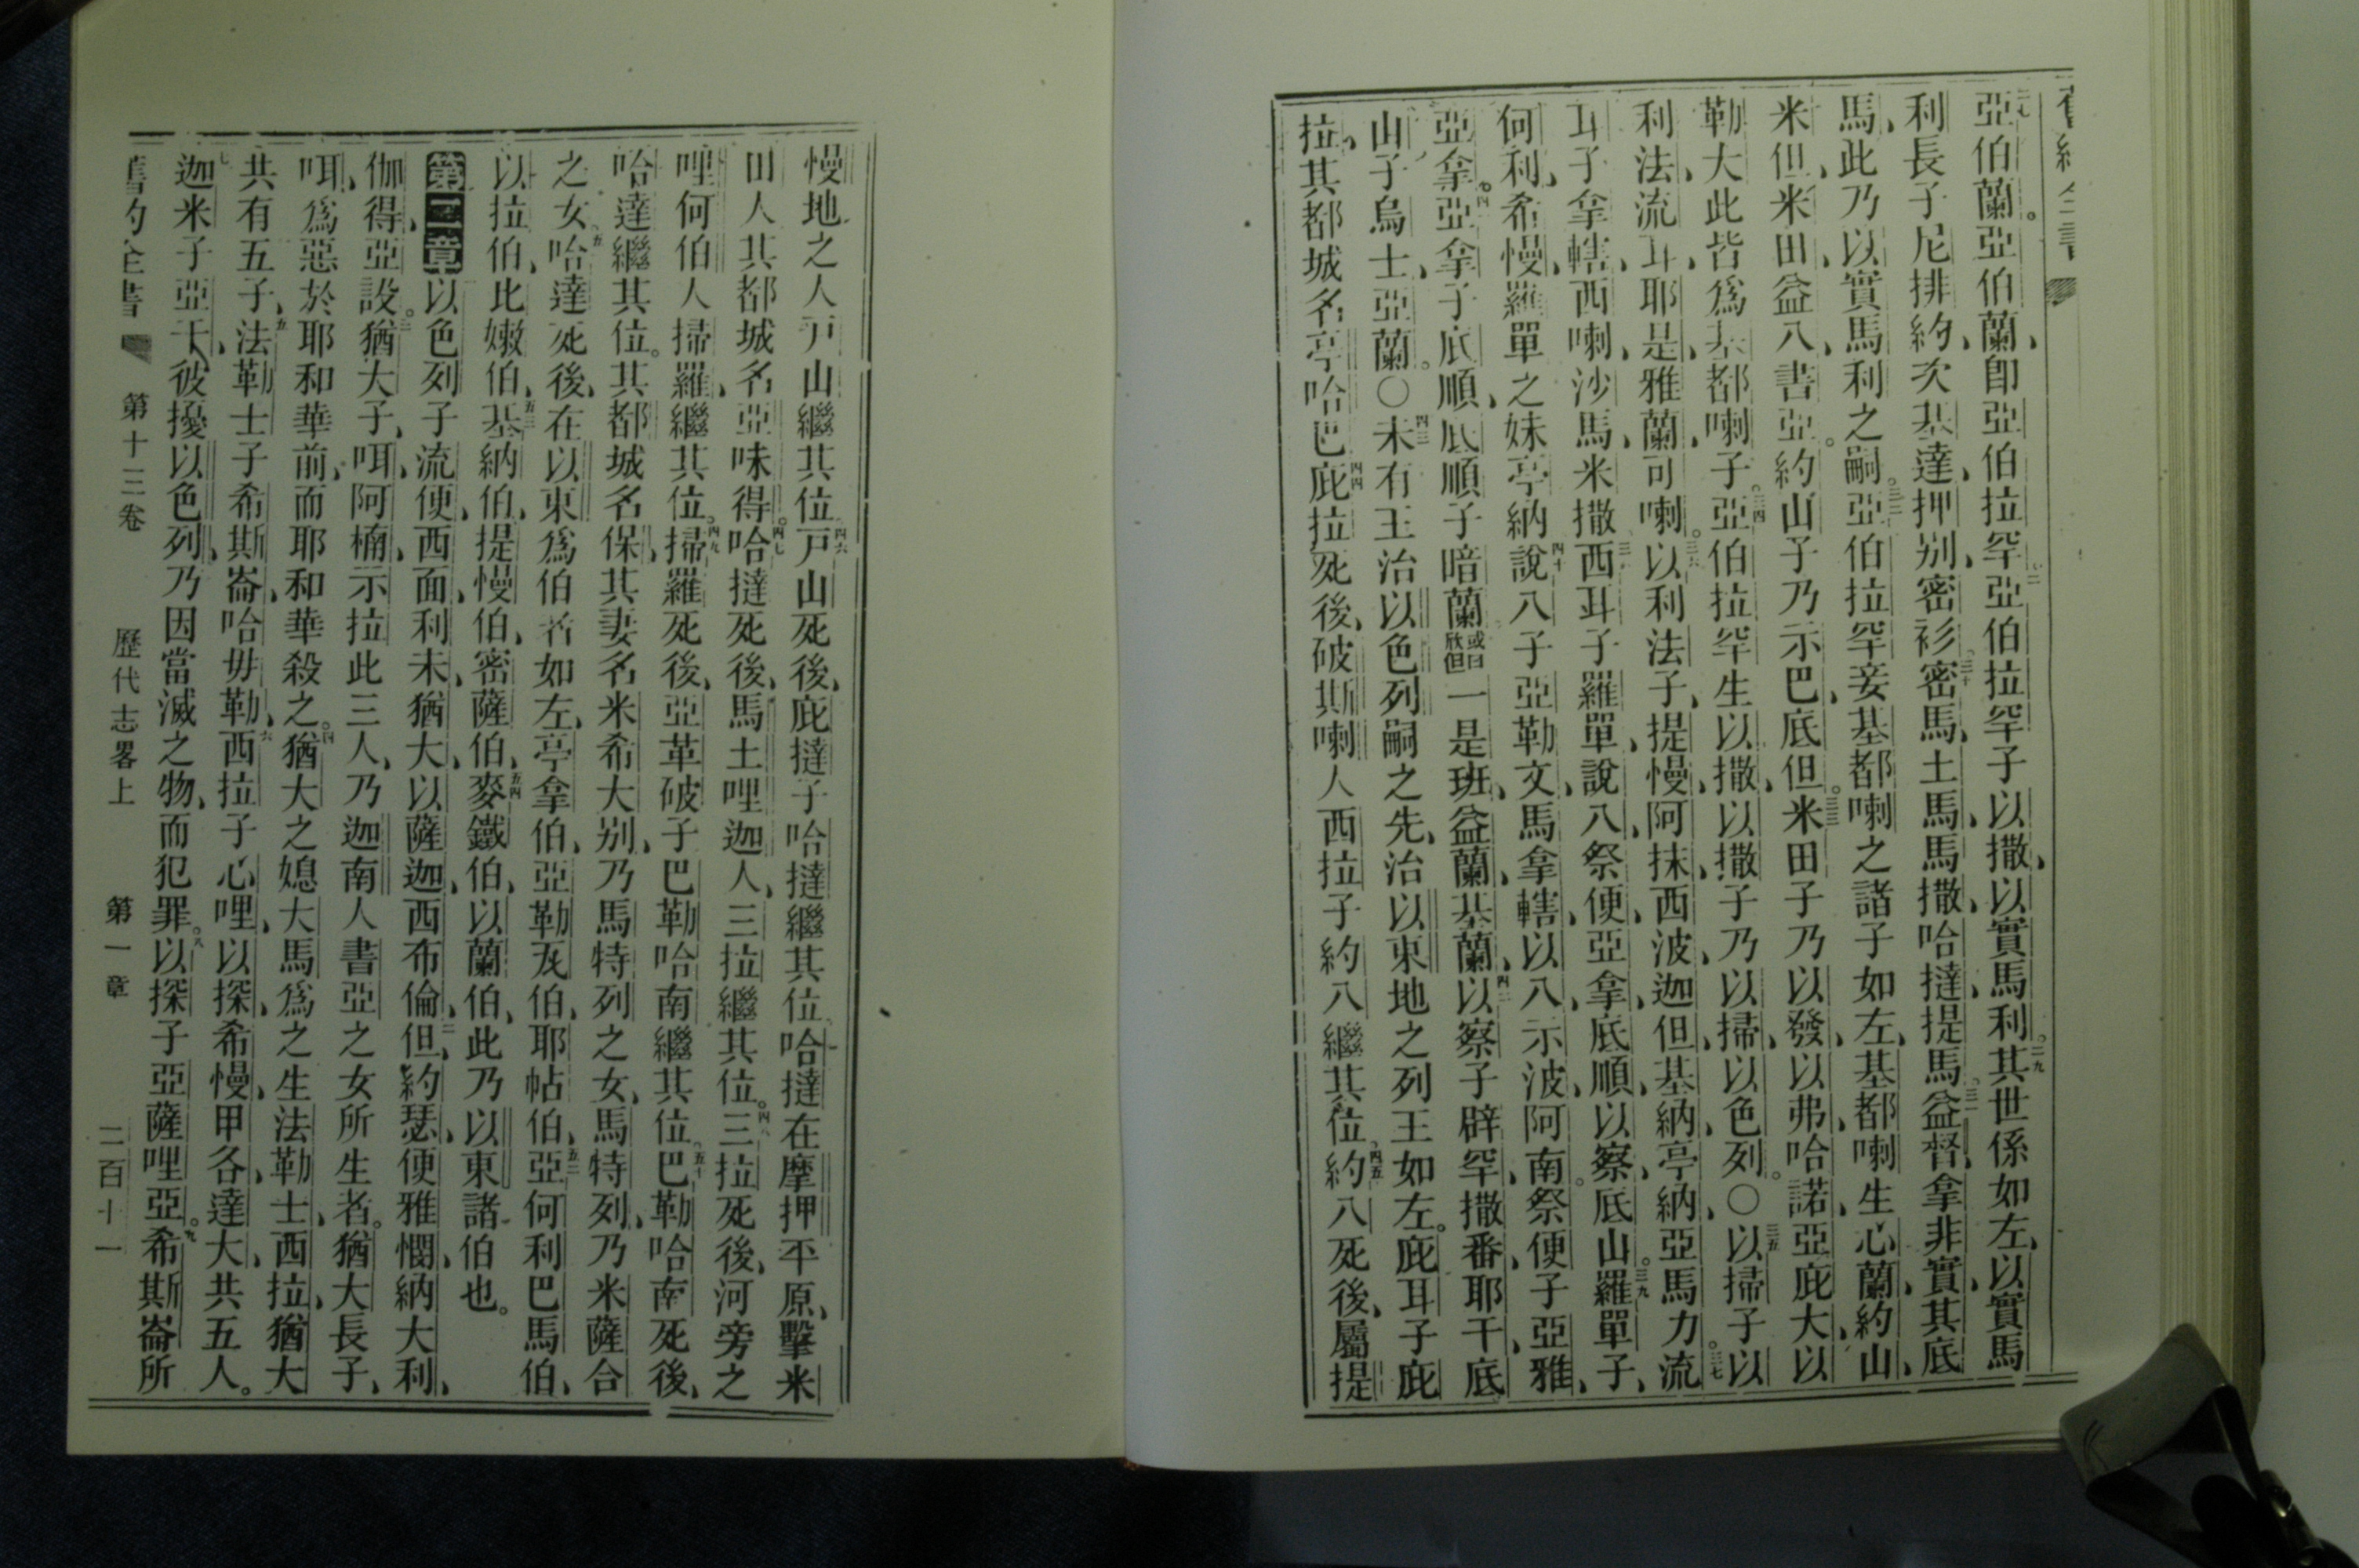 亞伯蘭。亞伯蘭、即亞伯拉罕、亞伯拉罕子以撒、以實馬利。二九其世係如左、以實馬
利長子尼排約、次基達、押別、密衫、三十密馬、土馬、馬撒、哈撻、提馬、三一益督、拿非實、其底
馬、此乃以實馬利之嗣。三二亞伯拉罕妾基都喇之諸子如左、基都喇生心蘭、約山、
米但、米田、益八、書亞。約山子乃示巴、底但。三三米田子乃以發、以弗、哈諾、亞庇大、以
勒大、此皆爲基都喇子。三四亞伯拉罕生以撒、以撒子乃以掃、以色列。〇三五以掃子以
利法、流耳、耶是、雅蘭、可喇。三六以利法子、提慢、阿抹、西波、迦但、基納、亭納、亞馬力。三七流
耳子拿轄、西喇、沙馬、米撒、西耳子羅單、說八、祭便、亞拿、底順、以察、底山。三九羅單子、
何利、希慢、羅單之妹亭納、四十說八子亞勒文、馬拿轄、以八、示波、阿南。祭便子亞雅、
亞拿。四一亞拿子底順、底順子喑蘭或曰欣但一是班、益蘭、基蘭、四二以察子辟罕、撒番、耶干、底
山子烏士、亞蘭。〇四三未有王治以色列嗣之先、治以東地之列王如左。庇耳子庇
拉、其都城名亭哈巴、四四庇拉死後、破斯喇人西拉子約八繼其位。四五約八死後、屬提
慢地之人戸山繼其位、四六戸山死後、庇撻子哈撻繼其位、哈撻在摩押平原、擊米
田人、其都城名亞味得。四七哈撻死後、馬士哩迦人、三拉繼其位。四八三拉死後、河旁之
哩何伯人掃羅、繼其位。四九掃羅死後、亞革破子巴勒哈南繼其位。五十巴勒哈南死後、
哈達繼其位。其都城名保、其妻名米希大別、乃馬特列之女、馬特列、乃米薩合
之女、五一哈達死後、在以東爲伯者如左、亭拿伯、亞勒瓦伯、耶帖伯、五二亞何利巴馬伯、
以拉伯、比嫩伯、五三基納伯、提慢伯、密薩伯、五四麥鐵伯、以蘭伯、此乃以東諸伯也。
第二章以色列子流便、西面、利未、猶大、以薩迦、西布倫、二但、約瑟、便雅憫、納大利、
伽得、亞設。三猶大子、咡、阿楠、示拉、此三人、乃迦南人書亞之女所生者。猶大長子、
咡、爲惡於耶和華前、而耶和華殺之。四猶大之媳大馬爲之生法勒士、西拉、猶大
共有五子、五法勒士子希斯崙、哈毋勒、六西拉子心哩、以探、希慢、甲各、達大、共五人。
七迦米子亞干、彼擾以色列、乃因當滅之物、而犯罪。八以探子亞薩哩亞。九希斯崙所
舊約全書　第十三卷　歷代志畧上　第一章　二百十一